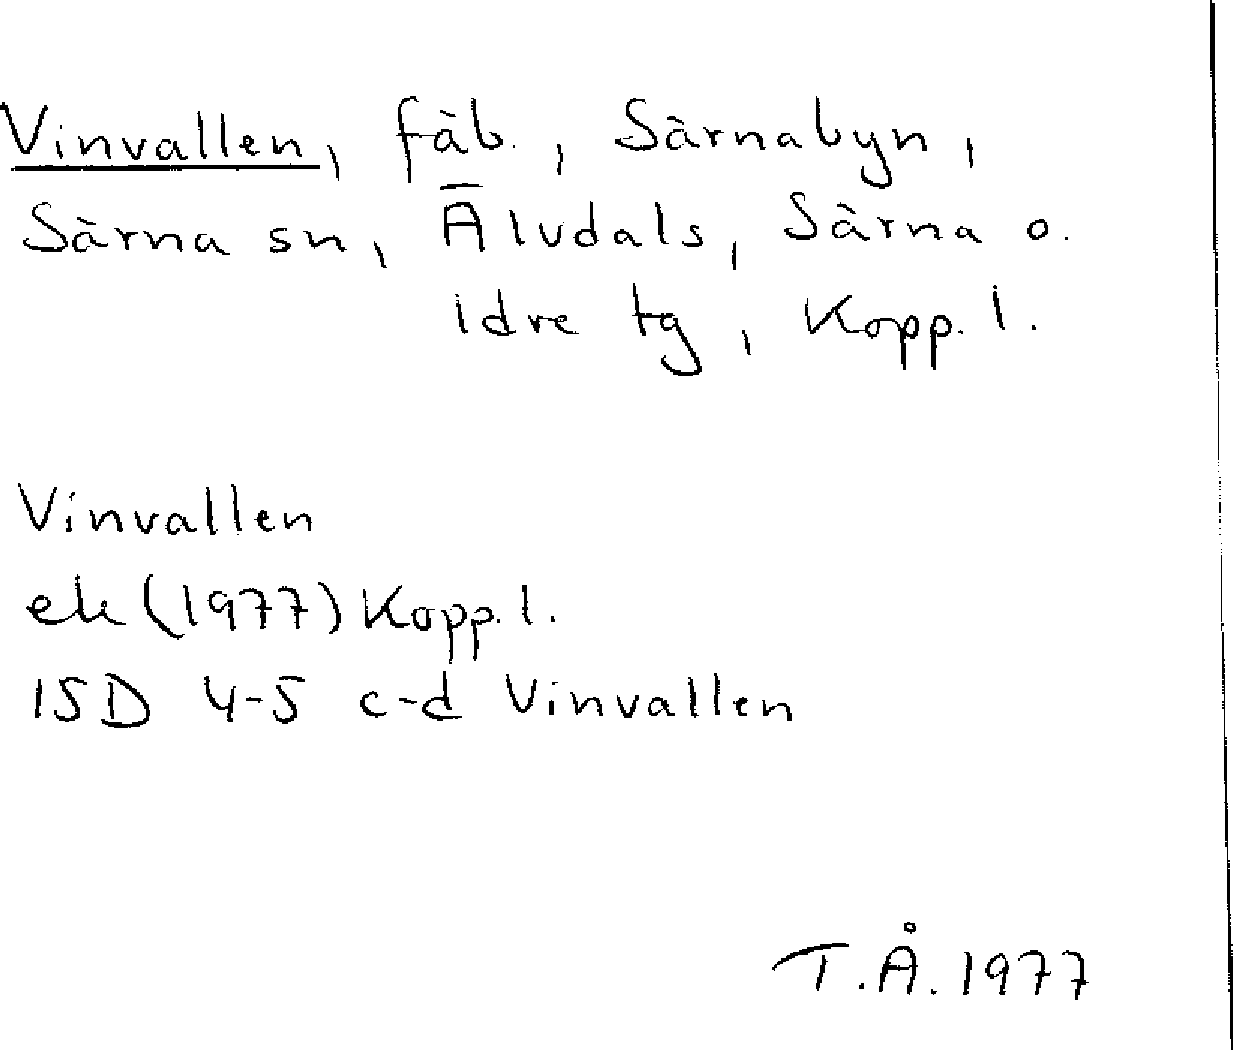 Vinvallen, fäb., Särnabyn,
Särna sn, Älvdals, Särna o.
Idre tg, Kopp. l.
Vinvallen
ek (1977) Kopp. l.
15D 4-5 c-d Vinvallen
T.Å. 1977